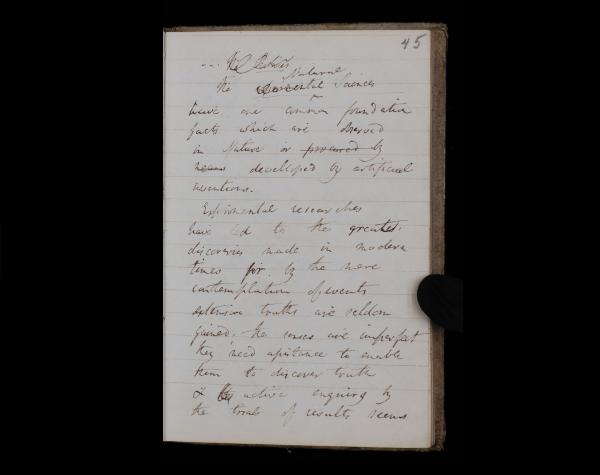 45
The Natural Sciences
have one common foundation
facts which are observed
in Nature or procured by
means developed by artificial
inventions.
Experimental researches
have led to the greatest
discoveries made in modern
times for by the mere
contemplation of events
extensive truths are seldom
gained. the senses are imperfect
they need assistance to enable
them to discover truth
& active enquiry by
the trial of results seems